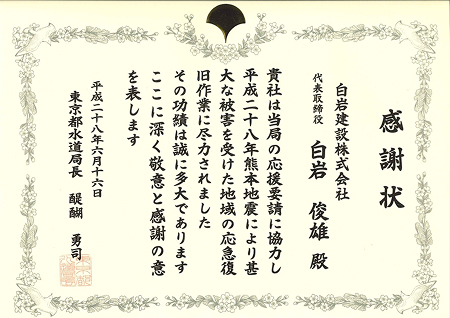 感謝状
白岩建設株式会社
代表取締役 白岩 俊雄 殿
貴社は当局の応援要請に協力し
平成二十八年熊本地震により甚
大な被害を受けた地域の応急復
旧作業に尽力されました
その功績は誠に多大であります
ここに深く敬意と感謝の意
を表します
平成二十八年六月十六日
東京都水道局長 醍醐 勇司